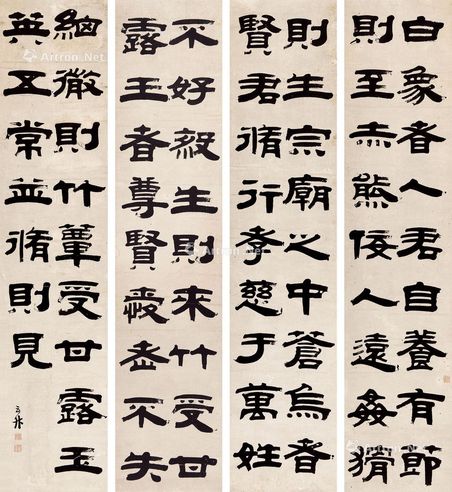 白象者人君自養有節
則至赤熊佞人遠姦猾
則生宗廟之中蒼烏者
賢君脩行孝慈于萬姓
不好殺生則來竹受甘
露王者尊賢愛老不失
細微則竹葦受甘露玉
英五常並脩則見
Artron.Net
Artron.Net
Artron.Net
Artron.Net